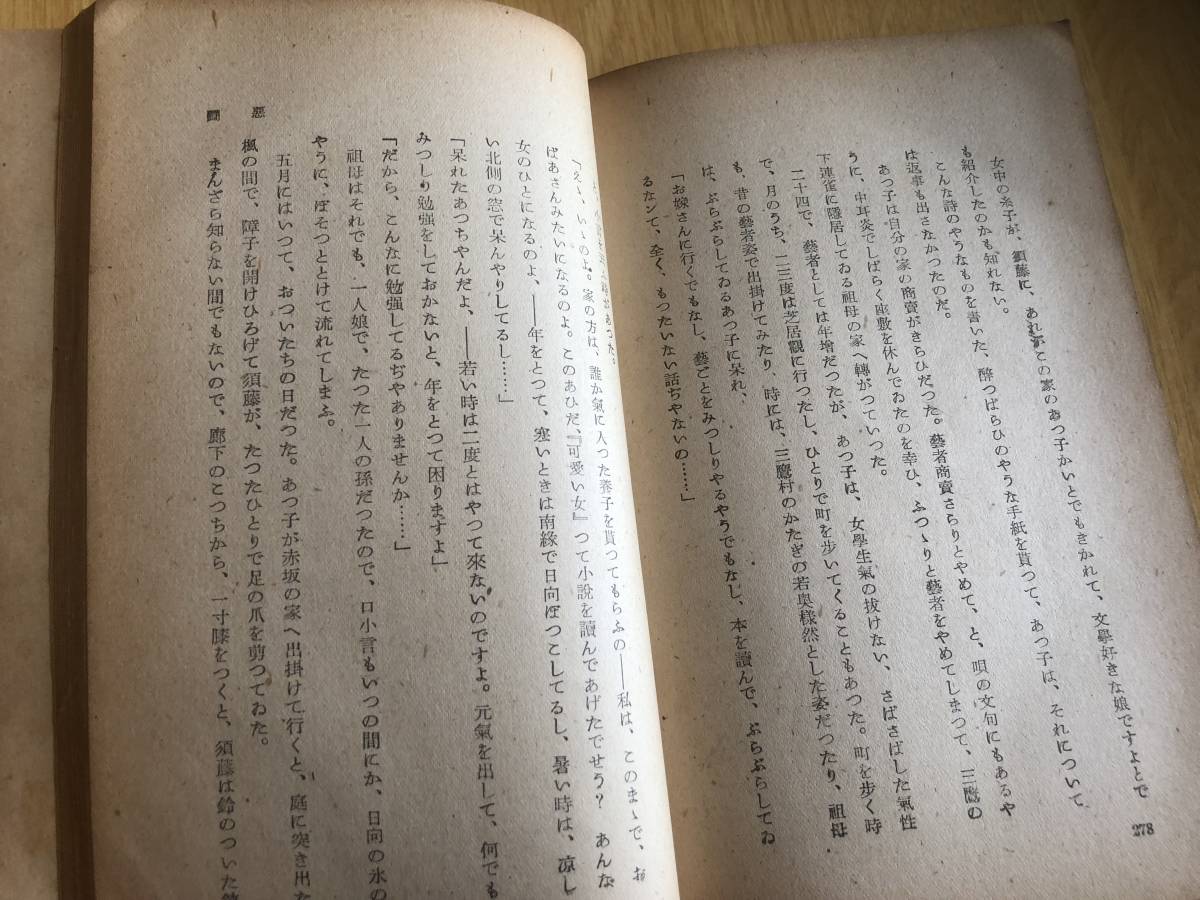 女中の糸子が、須藤に、あれがこの家のあつ子かいとでもきかれて、文學好きな娘ですよとで
も紹介したのかも知れない。
こんな詩のやうなものを書いた、醉つぱらひのやうな手紙を貰つて、あつ子は、それについて
は返事も出さなかつたのだ。
あつ子は自分の家の商賣がきらひだつた。藝者商賣さらりとやめて、と、唄の文句にもあるや
うに、中耳炎でしばらく座敷を休んでゐたのを幸ひ、ふつゝりと藝者をやめてしまつて、三鷹の
下連雀に隱居してゐる祖母の家へ轉がつていつた。
二十四で、藝者としては年增だつたが、あつ子は、女學生氣の拔けない、さばさばした氣性
で、月のうち、二三度は芝居觀に行つたし、ひとりで町を歩いてくることもあつた。町を歩く時
も、昔の藝者姿で出掛けてみたり、時には、三鷹村のかたぎの若奧樣然とした姿だつたり、祖母
は、ぶらぶらしてゐるあつ子に呆れ、
「お嫁さんに行くでもなし、藝ごとをみつしりやるやうでもなし、本を讀んで、ぶらぶらしてゐ
るなンて、全く、もつたいない話ぢやないの……」
278
があつた。
「えゝ、いゝのよ。家の方は、誰か氣に入つた養子を貰つてもらふの――私は、このまゝで、お
ばあさんみたいになるのよ。このあひだ、『可愛い女』つて小說を讀んであげたでせう？　あんな
女のひとになるのよ、――年をとつて、寒いときは南緣で日向ぼつこしてるし、暑い時は、凉し
い北側の窓で呆んやりしてるし……」
「呆れたあつちやんだよ、――若い時は二度とはやつて來ないのですよ。元氣を出して、何でも
みつしり勉强をしておかないと、年をとつて困りますよ」
「だから、こんなに勉强してるぢやありませんか……」
祖母はそれでも、一人娘で、たつた一人の孫だつたので、口小言もいつの間にか、日向の氷の
やうに、ぼそつととけて流れてしまふ。
五月にはいつて、おついたちの日だつた。あつ子が赤坂の家へ出掛けて行くと、庭に突き出た
楓の間で、障子を開けひろげて須藤が、たつたひとりで足の爪を剪つてゐた。
まんざら知らない間でもないので、廊下のこつちから、一寸膝をつくと、須藤は鈴のついた
惡鬪